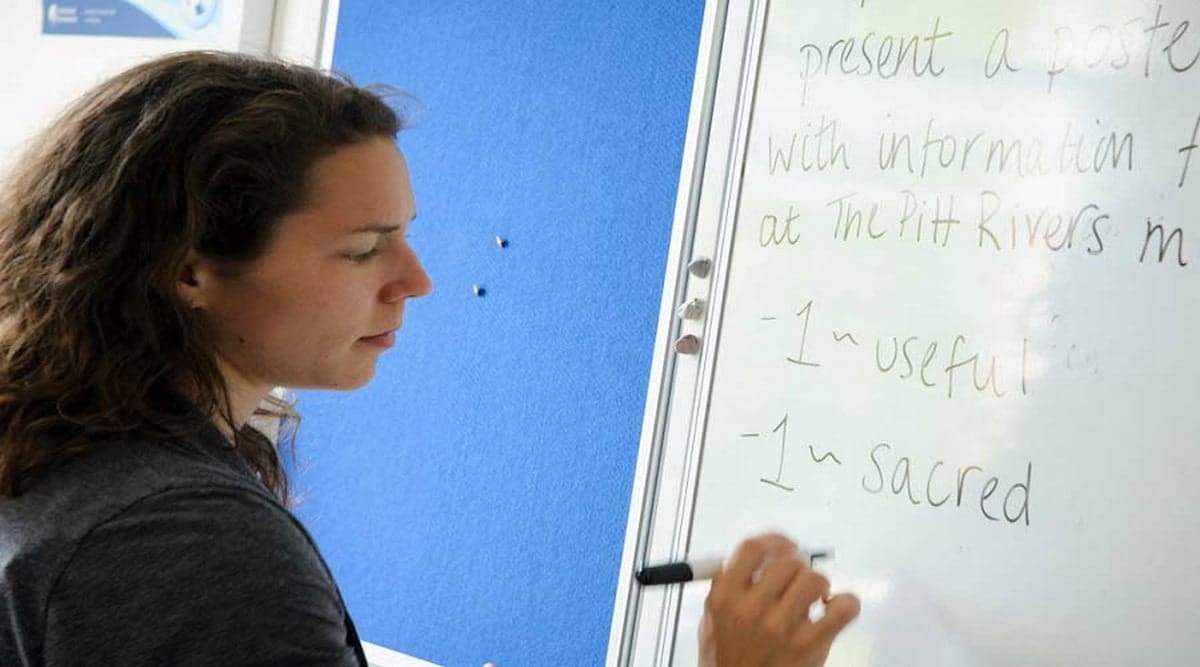 present a poste
with information f
at The Pitt Rivers m
-1 ~ useful
-1 ~ sacred